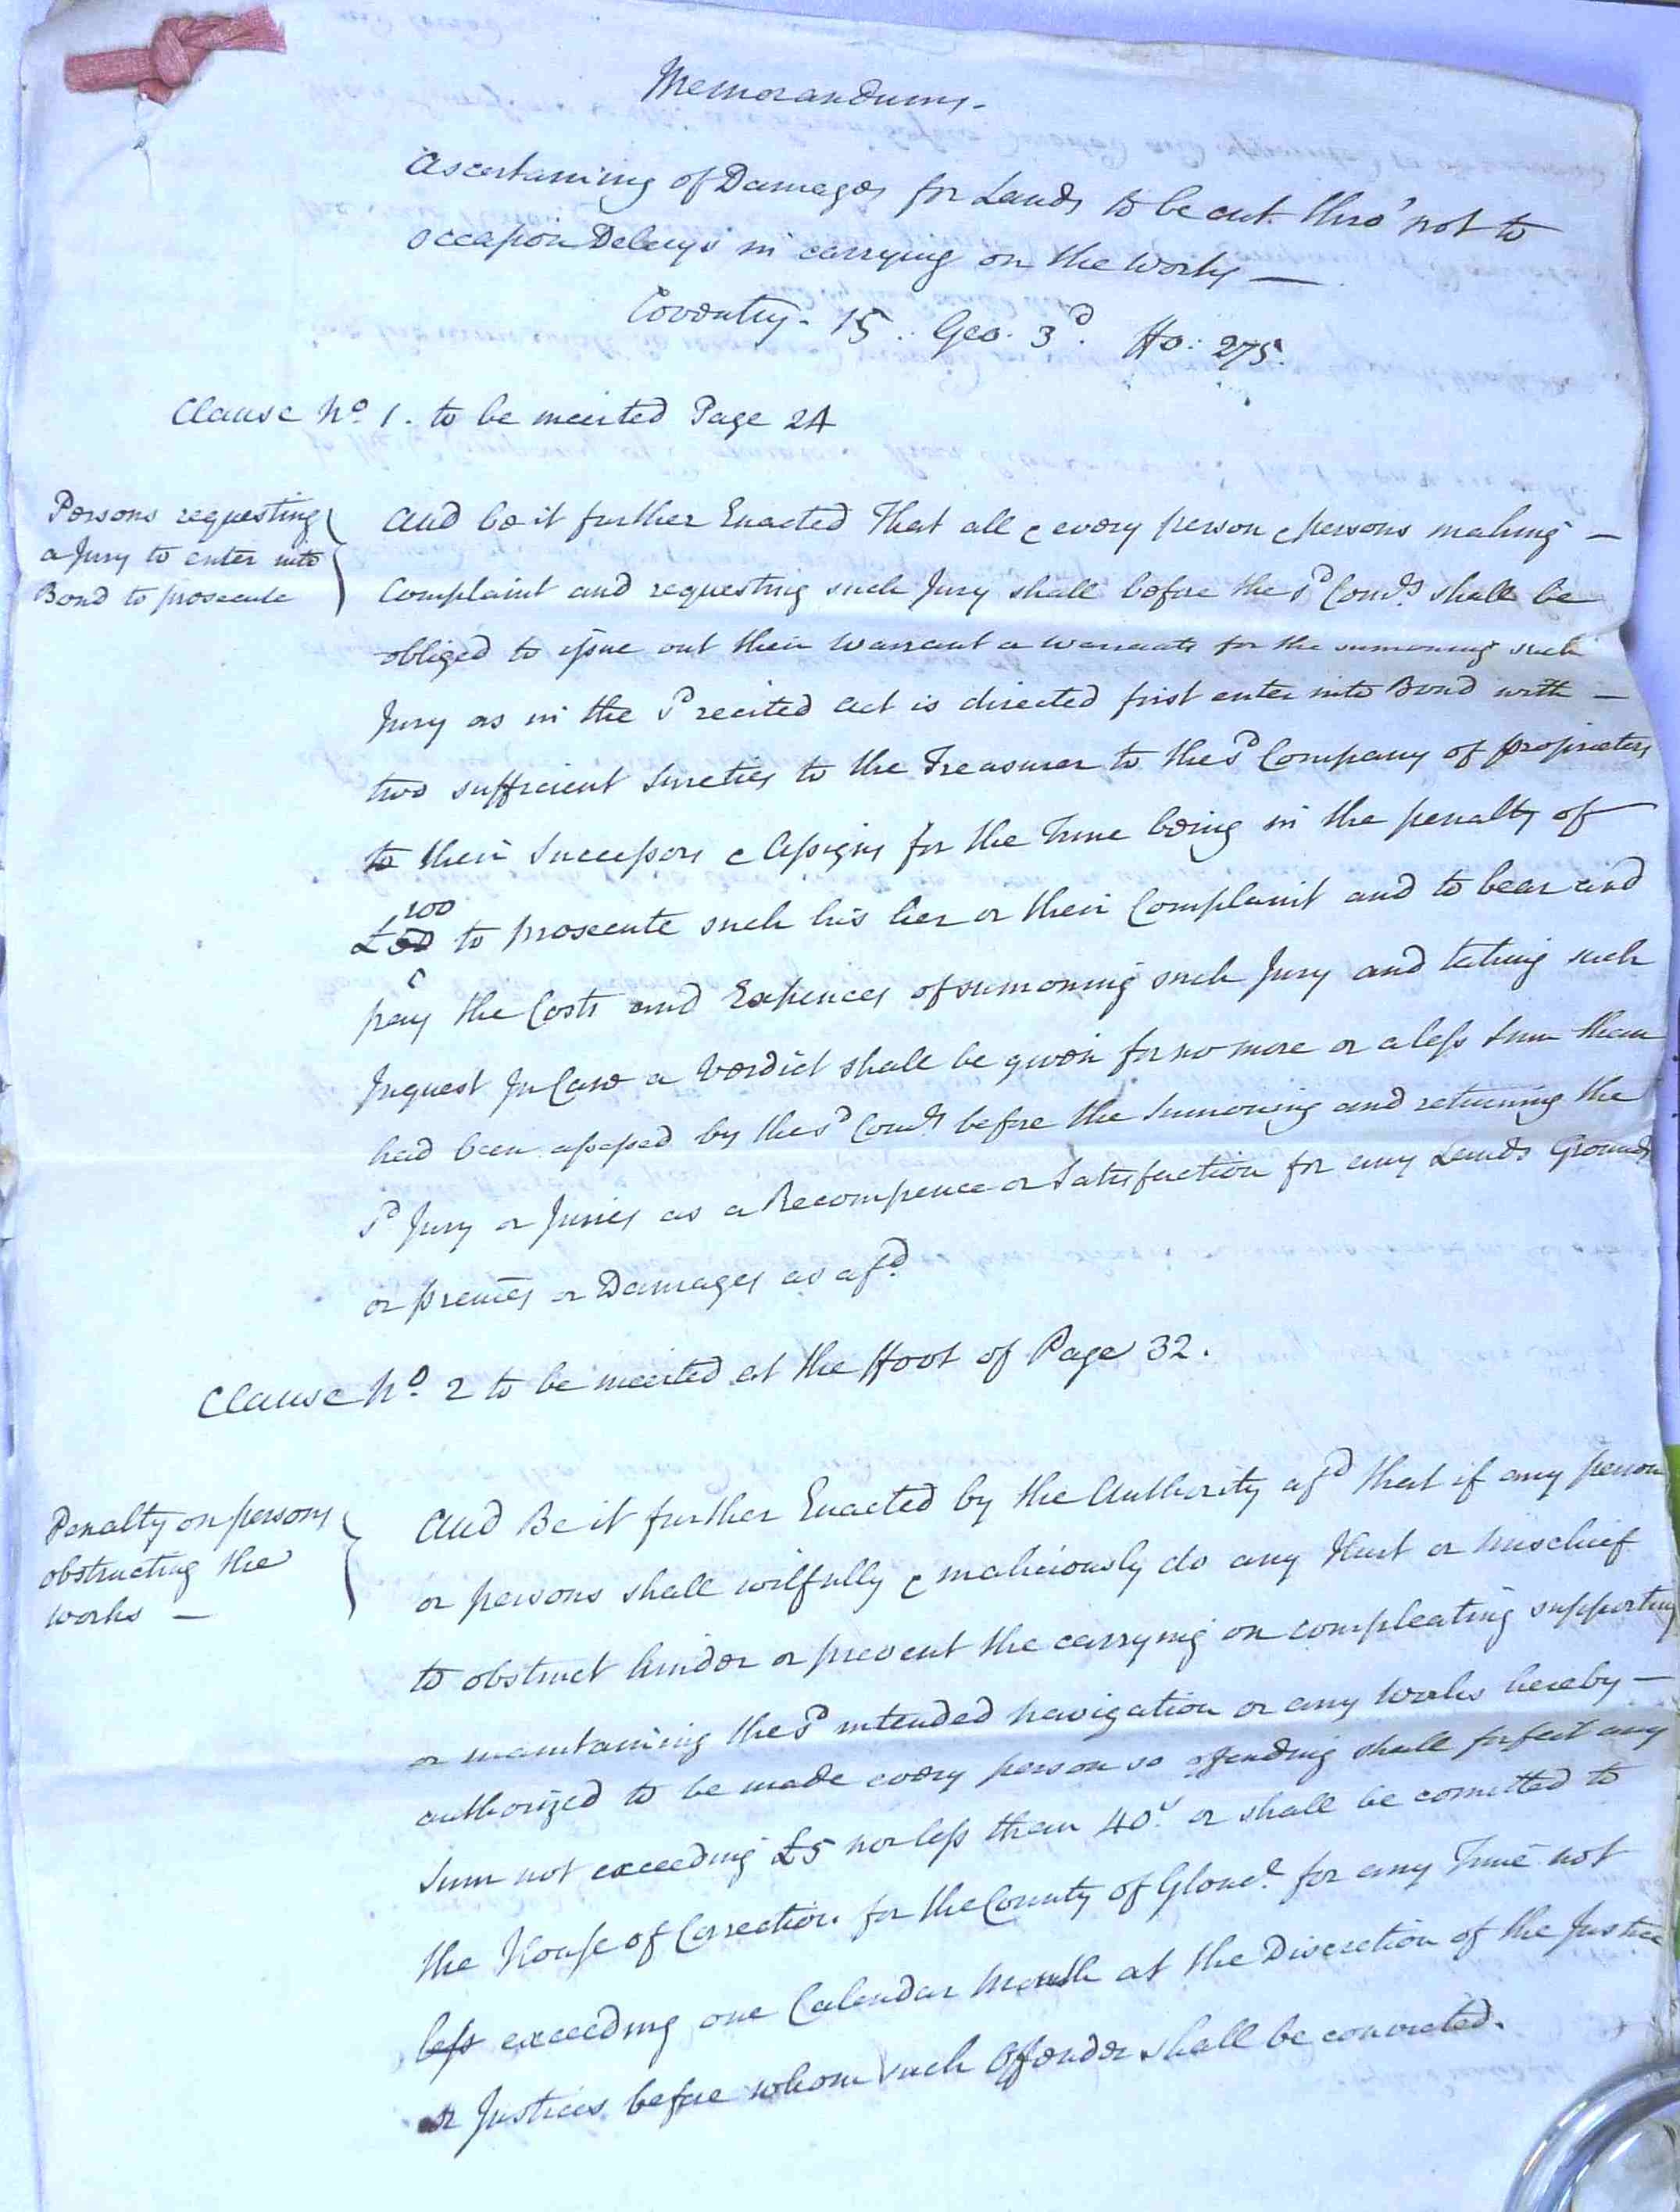 Memorandums.
Ascertaining of Damages for Lands to be cut thro' not to
occasion Delays in carrying on the works —
Coventry. 15. Geo. 3d. fo: 275.
Clause No. 1. to be inserted Page 24
Persons requesting
a Jury to enter into
Bond to prosecute
And be it further Enacted That all & every person & persons making —
Complaint and requesting such Jury shall before the sd Comrs. shall be
obliged to issue out their Warrant or Warrants for the summoning such
Jury as in the sd recited Act is directed first enter into Bond with —
two sufficient Sureties to the Treasurer to the sd Company of proprietors
to their Successors & Assigns for the Time being in the penalty of
100
£50 to prosecute such his her or their Complaint and to bear and
pay the Costs and Expences of sumoning such Jury and taking such
Inquest In Case a Verdict shall be given for no more or a less Sum than
had been assessed by the sd Comrs before the Sumoning and returning the
sd Jury or Juries as a Recompence or Satisfaction for any Lands Grounds
or premes or Damages as afd.
Clause No. 2 to be inserted at the Foot of Page 32.
Penalty on persons
obstructing the
works —
And Be it further Enacted by the Authority afd that if any person
or persons shall wilfully & maliciously do any Hurt or Mischief
to obstruct hinder or prevent the carrying on compleating supporting
or maintaining the sd intended navigation or any Works hereby —
authorized to be made every person so offending shall forfeit any
Sum not exceeding £5 nor less than 40s. or shall be comitted to
the House of Correction for the County of Gloucr. for any Time not
less exceeding one Calendar Month at the Discretion of the Justice
or Justices before whom such Offender shall be convicted.